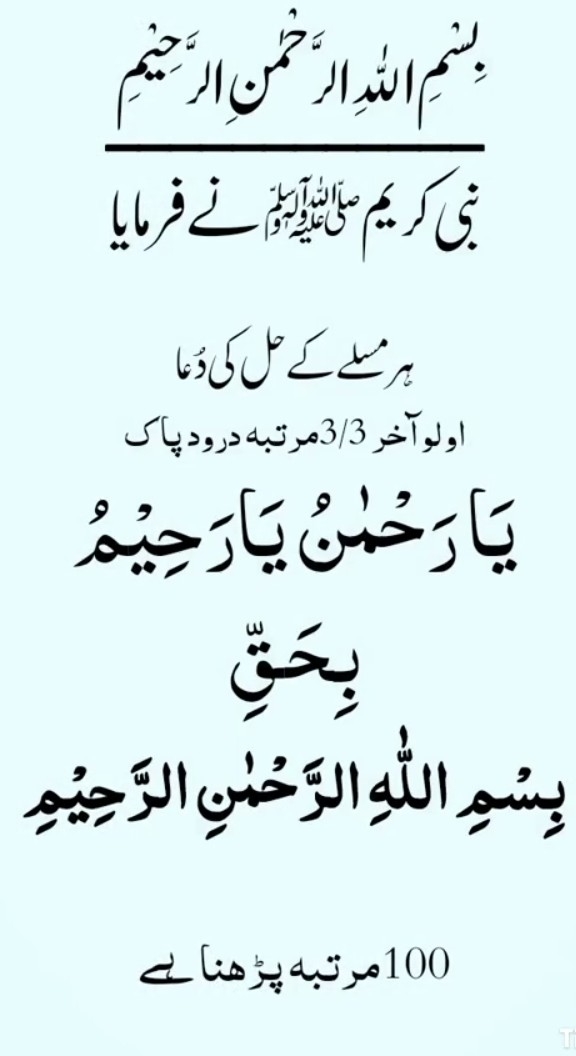 بِسْمِ اللهِ الرَّحْمٰنِ الرَّحِيْمِ
نبی کریم ﷺ نے فرمایا
ہر مسلے کے حل کی دُعا
اولوآخر 3/3مرتبہ درود پاک
يَا رَحْمٰنُ يَا رَحِيْمُ
بِحَقِّ
بِسْمِ اللّٰهِ الرَّحْمٰنِ الرَّحِيْمِ
100مرتبہ پڑھنا ہے